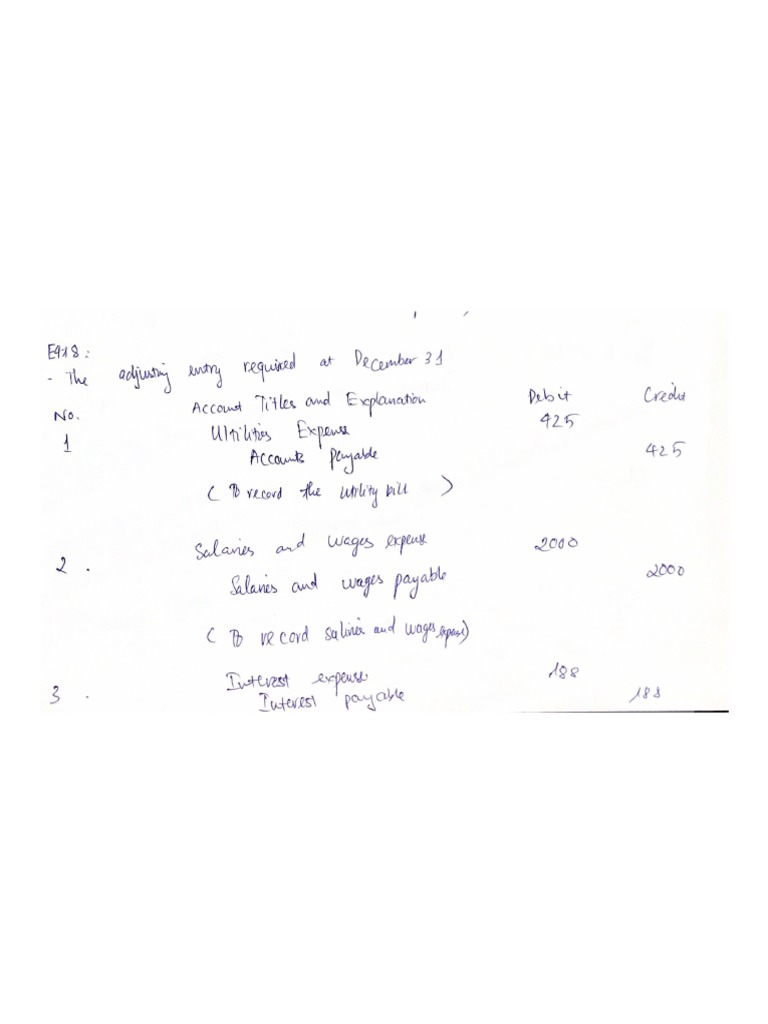 E4.18:
- The adjusting entry required at December 31
No. Account Titles and Explanation Debit Credit
1 Utilities Expense 425
Accounts payable 425
( To record the utility bill )
2 . Salaries and wages expense 2000
Salaries and wages payable 2000
( To record salines and wages expense)
3 . Interest expense 188
Interest payable 188